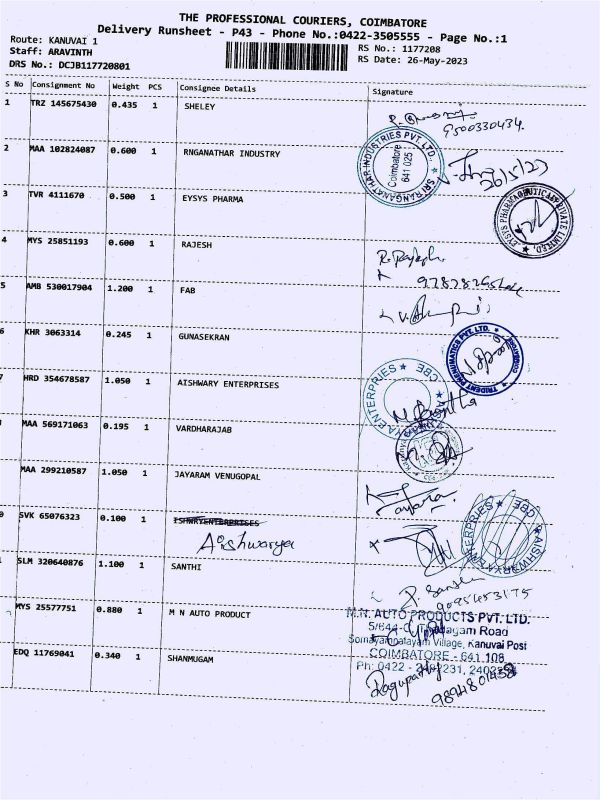 THE PROFESSIONAL COURIERS, COIMBATORE
Delivery Runsheet - P43 - Phone No.:0422-3505555 - Page No.:1
Route: KANUVAI 1
Staff: ARAVINTH
DRS No.: DCJB117720801
RS No.: 1177208
RS Date: 26-May-2023
S No Consignment No Weight PCS Consignee Details Signature
1 TRZ 145675430 0.435 1 SHELEY
9500330434.
2 MAA 102824087 0.600 1 RNGANATHAR INDUSTRY
SRI RANGANATHAR INDUSTRIES PVT. LTD.
Coimbatore
641 025
26/5/23
3 TVR 4111670 0.500 1 EYSYS PHARMA
EYSYS PHARMACEUTICAL PRIVATE LIMITED.
4 MYS 25851193 0.600 1 RAJESH
R. Rajesh
5 AMB 530017904 1.200 1 FAB
6 KHR 3063314 0.245 1 GUNASEKRAN
TRIDENT PNEUMATICS PVT. LTD.
HRD 354678587 1.050 1 AISHWARY ENTERPRISES
ENTERPRIES CBE
MAA 569171063 0.195 1 VARDHARAJAB
MAA 299210587 1.050 1 JAYARAM VENUGOPAL
SVK 65076323 0.100 1
Aishwarya
AISHWARYA ENTERPRIES CBE
SLM 320640876 1.100 1 SANTHI
MYS 25577751 0.880 1 M N AUTO PRODUCT
M.N. AUTO PRODUCTS PVT. LTD.
5/644-C, Road
Somayampalayam Village, Kanuvai Post
COIMBATORE - 641 108
Ph: 0422 -
EDQ 11769041 0.340 1 SHANMUGAM
Ragupathy